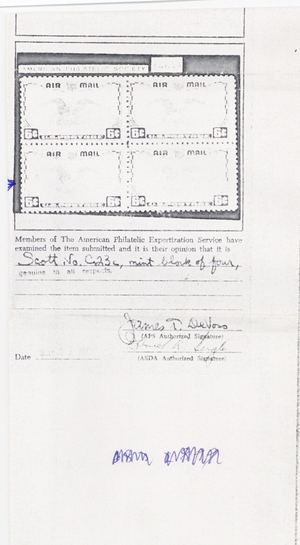 AMERICAN PHILATELIC SOCIETY
AIR MAIL AIR MAIL
6¢ 6¢ 6¢ 6¢
AIR MAIL AIR MAIL
6¢ 6¢ 6¢ 6¢
Members of The American Philatelic Expertization Service have
examined the item submitted and it is their opinion that it is
Scott No. C23c, mint block of four,
genuine in all respects.
James T. DeVoss
(APS Authorized Signature)
(ASDA Authorized Signature)
Date